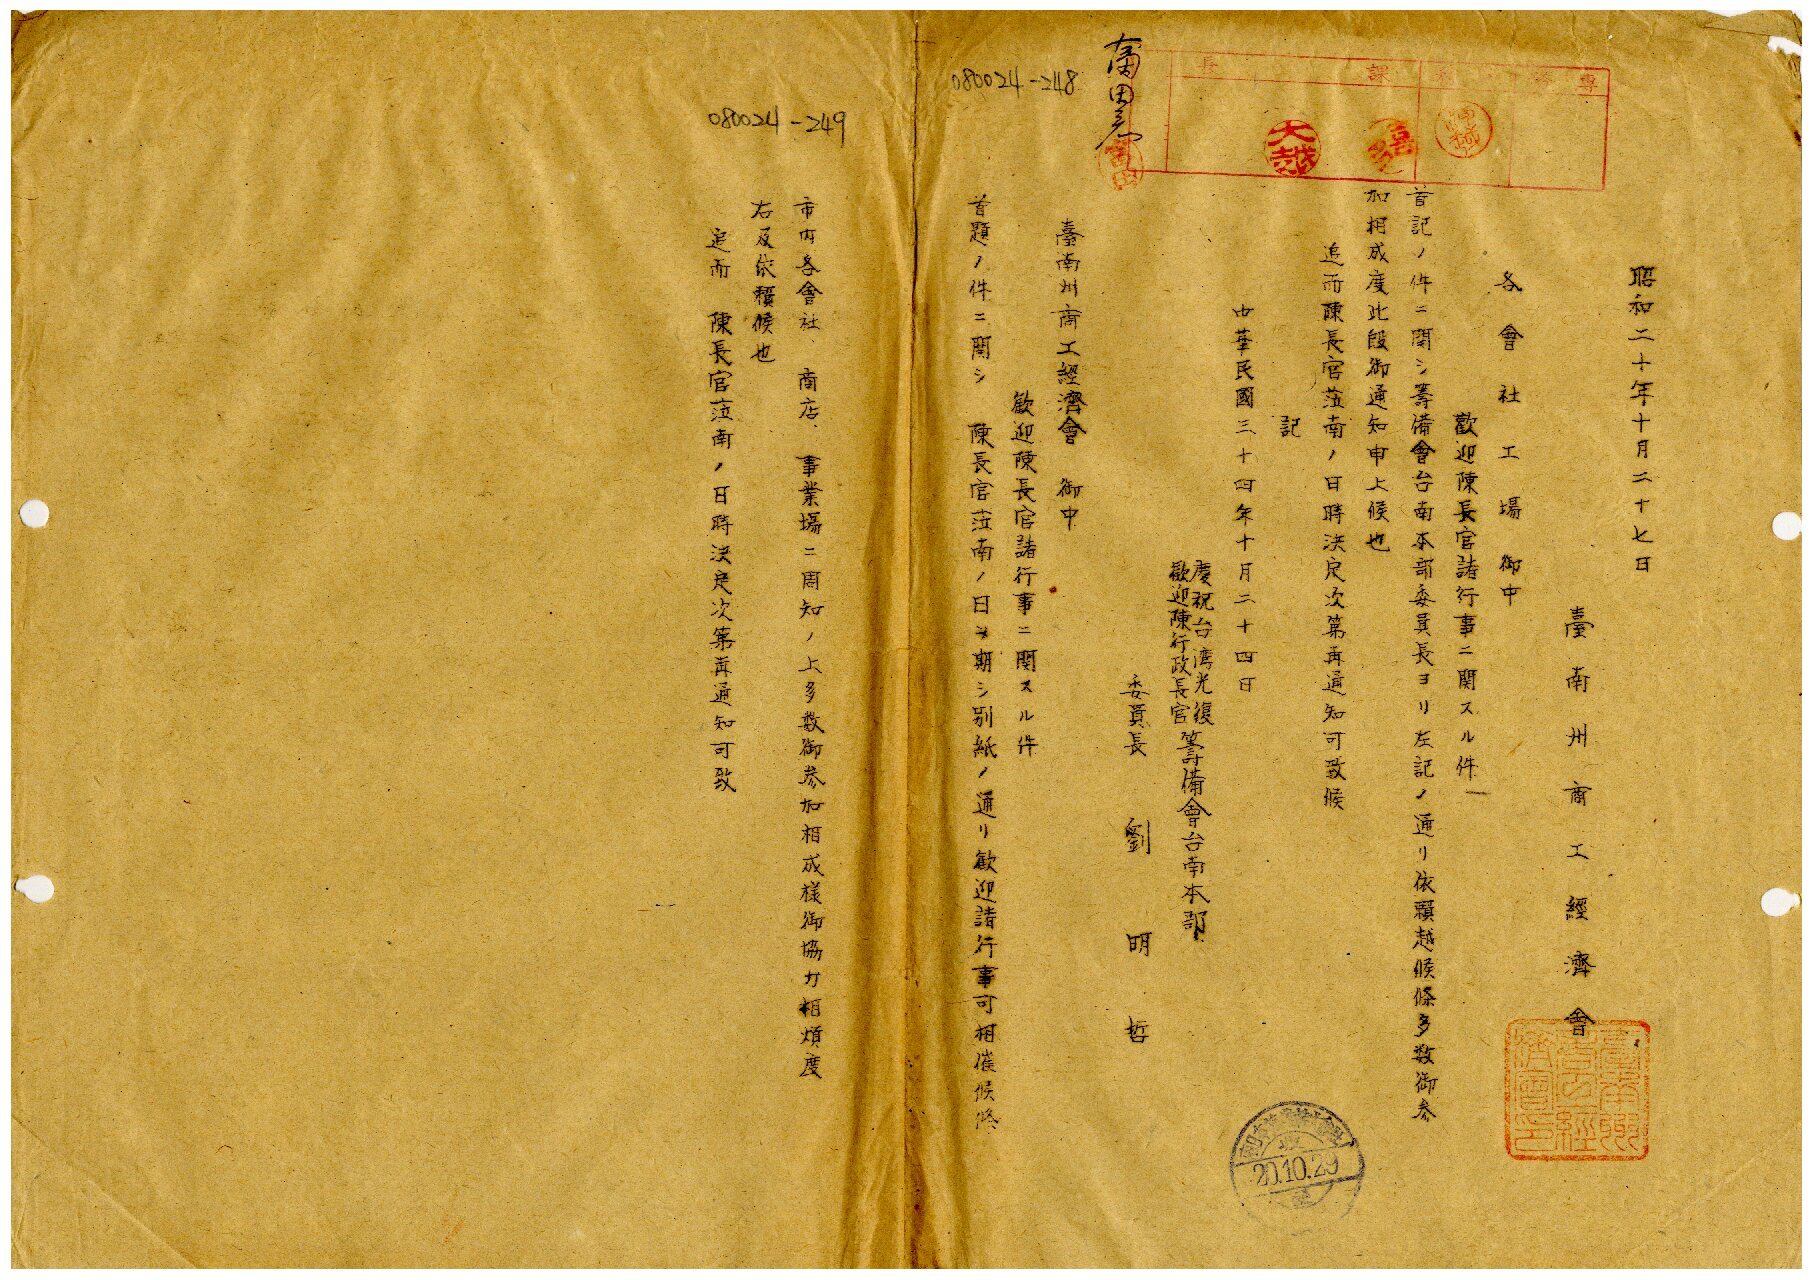 080024-248
専務
課長
大越
喜多
昭和二十年十月二十七日
臺南州商工經濟會
各會社工場御中
歡迎陳長官諸行事ニ関スル件
首記ノ件ニ関シ籌備會台南本部委員長ヨリ左記ノ通リ依頼越候條多数御参
加相成度此段御通知申上候也
追而陳長官蒞南ノ日時決定次第再通知可致候
記
中華民國三十四年十月二十四日
慶祝台湾光復
歡迎陳行政長官
籌備會台南本部
委員長 劉明哲
臺南州商工經濟會 御中
歡迎陳長官諸行事ニ関スル件
首題ノ件ニ関シ 陳長官蒞南ノ日ヲ期シ別紙ノ通リ歡迎諸行事可相催候條
20.10.29
080024-249
市内各會社、商店、事業場ニ周知ノ上多数御参加相成様御協力相煩度
右及依頼候也
追而 陳長官蒞南ノ日時決定次第再通知可致